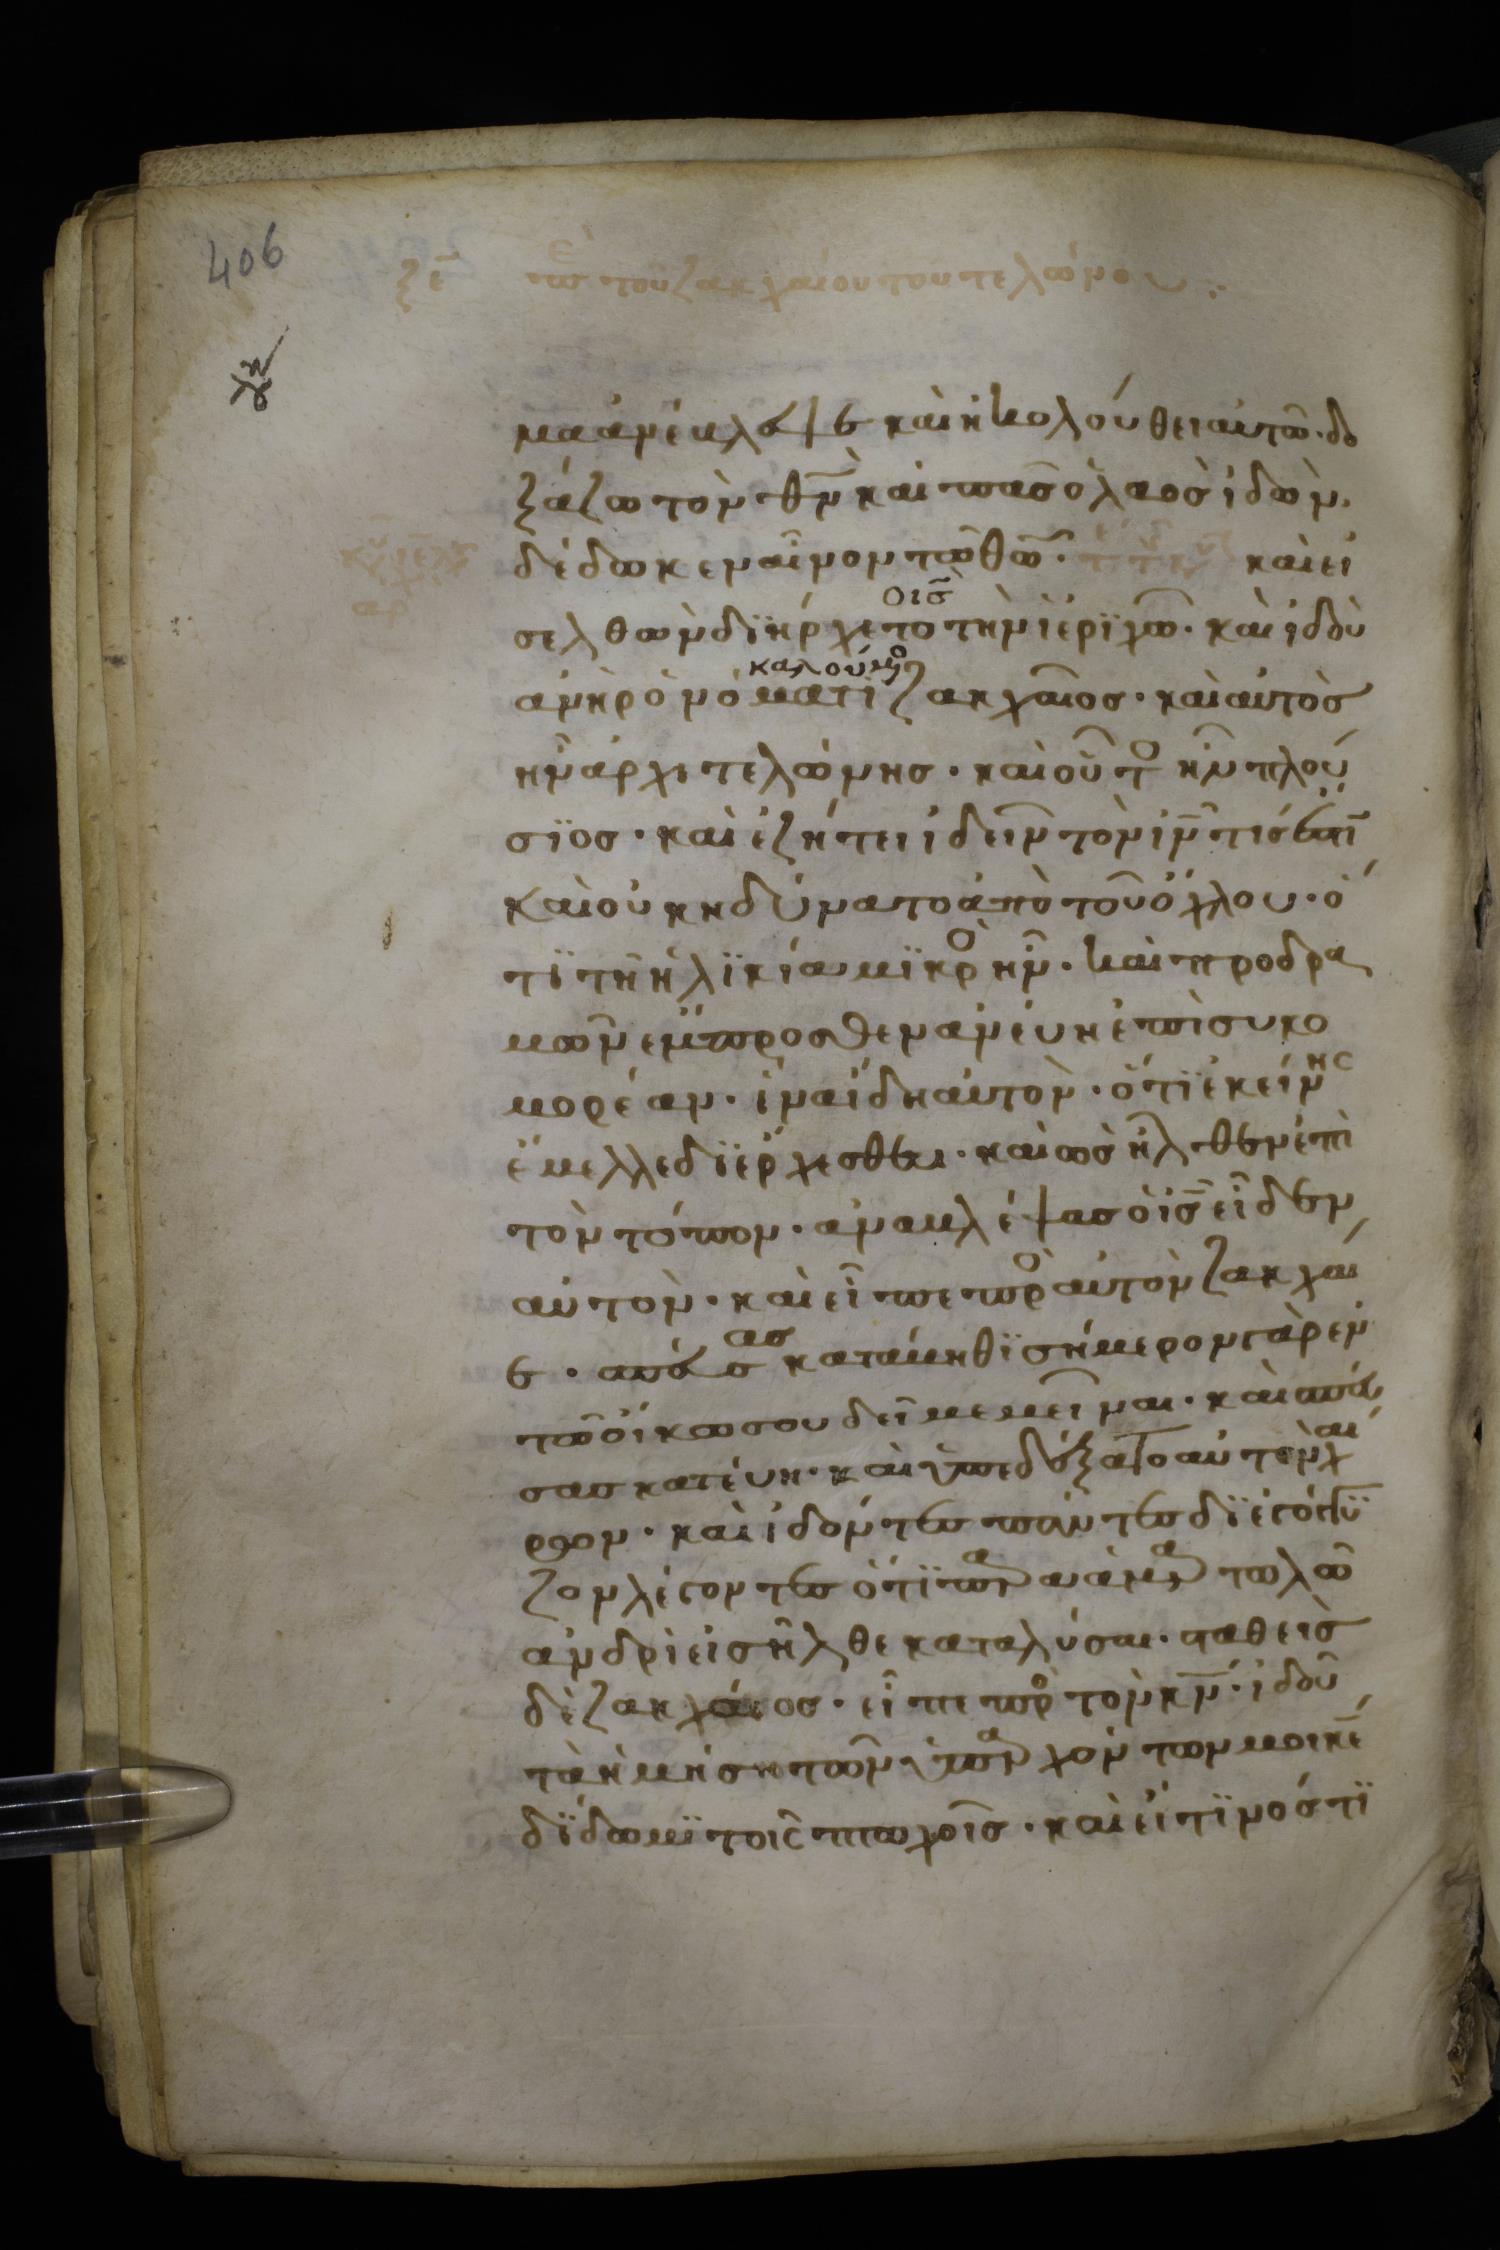 406
ξε πε του ζακχαίου του τελώνου :
μα ἀνέβλεψε καὶ ἠκολούθει αὐτῶ · δο
ξάζω τὸν θν̄ καὶ πᾶσ ὁ λαοσ ἰδὼν ·
δέδωκεν αἶνον τῶ θῶ · καὶ εἰ
σελθὼν δϊήρχετο τὴν ϊἐρϊχῶ · καὶ ἰδοὺ
οισ̄
ἀνὴρ ὀνόματι ζακχαῖος · καὶ αὐτὸσ
καλούμο
ἦν ἀρχιτελώνησ · καὶ οὗτο ἦν πλού
σϊοσ · καὶ ἐζήτει ἰδεῖν τὸν ιν̄ τίσ ἐστι
καὶ οὐκ ηδύνατο ἀπὸ τοῦ ὄχλου · ὁ
τϊ τῆ ἡλϊκία μϊκρο ἦν · καὶ προδρα
μῶν ἔμπροσθεν ἀνέβη ἐπὶ συκο
μορέαν · ἵνα ἴδη αὐτὸν · ὅτϊ ἐκείνησ
ἔμελλε δϊέρχεσθαι · καὶ ὡσ ἦλθεν ἐπὶ
τὸν τόπον · ἀναβλέψασ ὁ ισ̄ εἶδεν
αὐτὸν · καὶ εἶπε προ αὐτὸν ζακχαῖ
ε · σπεύσασ κατάβηθϊ σήμερον γὰρ ἐν
τῶ οἴκω σου δεῖ με μεῖναι · καὶ σπεύ
σασ κατέβη · καὶ ὑπεδέξατο αὐτὸν χαί
ρων · καὶ ἰδόντεσ πάντεσ δϊεγόγγυ
ζον λέγοντεσ ὅτϊ παρα ἁμαρτωλῶ
ἀνδρὶ εἰσῆλθε καταλύσαι · σταθεὶσ
δὲ ζακχάιοσ · εἶπε προ τὸν κν̄ · ἰδοὺ
τὰ ἡμήση τῶν ὑπαρχόντων μοι κε̄
δϊδωμϊ τοῖσ πτωχοῖσ · καὶ εἴ τϊνόσ τϊ